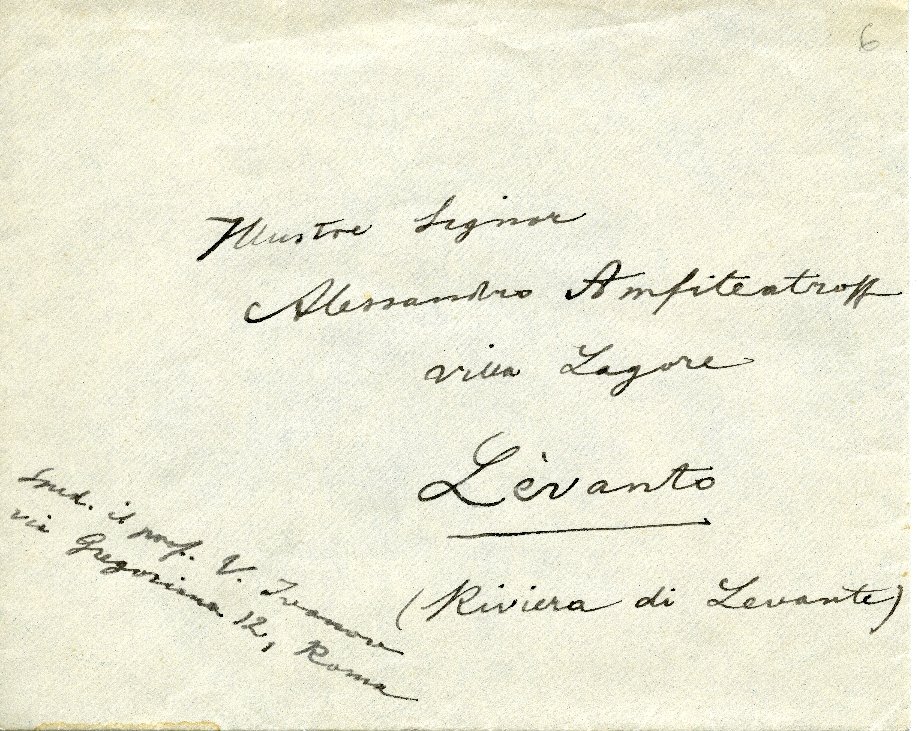 6
Illustre Signor
Alessandro Amfiteatroff
villa Lagore
Lèvanto
(Riviera di Levante)
Sped. il prof. V. Ivanov
via Gregoriana 12, Roma